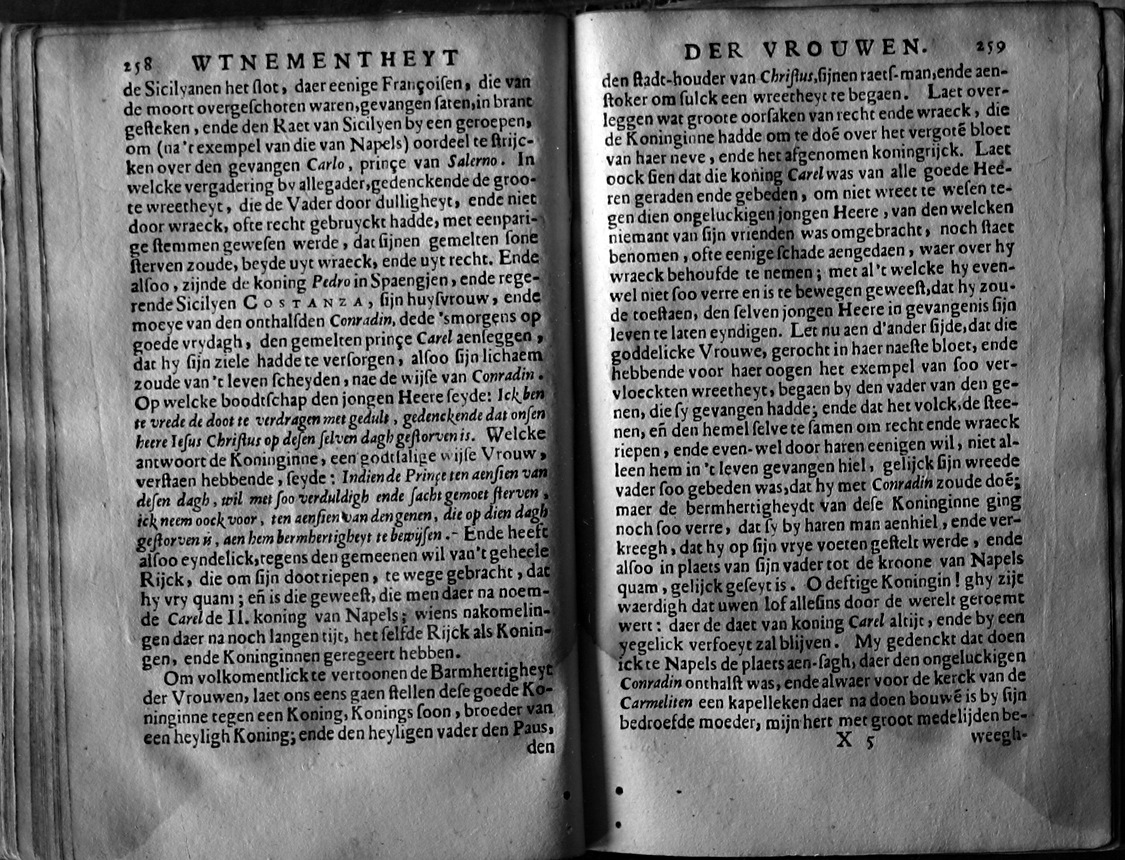 258 WTNEMENTHEYT
de Sicilyanen het slot, daer eenige Françoisen, die van
de moort overgeschoten waren, gevangen saten, in brant
gesteken, ende den Raet van Sicilyen by een geroepen,
om (na 't exempel van die van Napels) oordeel te strijc-
ken over den gevangen Carlo, prinçe van Salerno. In
welcke vergadering by allegader, gedenckende de groo-
te wreetheyt, die de Vader door dulligheyt, ende niet
door wraeck, ofte recht gebruyckt hadde, met eenpari-
ge stemmen gewesen werde, dat sijnen gemelten sone
sterven zoude, beyde uyt wraeck, ende uyt recht. Ende
alsoo, zijnde de koning Pedro in Spaengjen, ende rege-
rende Sicilyen COSTANZA, sijn huysvrouw, ende
moeye van den onthalsden Conradin, dede 'smorgens op
goede vrydagh, den gemelten prinçe Carel aenseggen,
dat hy sijn ziele hadde te versorgen, alsoo sijn lichaem
zoude van 't leven scheyden, nae de wijse van Conradin.
Op welcke boodtschap den jongen Heere seyde: Ick ben
te vrede de doot te verdragen met gedult, gedenckende dat onsen
heere Iesus Christus op desen selven dagh gestorven is. Welcke
antwoort de Koninginne, een godtsalige wijse Vrouw,
verstaen hebbende, seyde: Indien de Prinçe ten aensien van
desen dagh, wil met soo verduldigh ende sacht gemoet sterven,
ick neem oock voor, ten aensien van den genen, die op dien dagh
gestorven is, aen hem bermhertigheyt te bewijsen. - Ende heeft
alsoo eyndelick, tegens den gemeenen wil van 't geheele
Rijck, die om sijn doot riepen, te wege gebracht, dat
hy vry quam; eñ is die geweest, die men daer na noem-
de Carel de II. koning van Napels; wiens nakomelin-
gen daer na noch langen tijt, het selfde Rijck als Konin-
gen, ende Koninginnen geregeert hebben.
Om volkomentlick te vertoonen de Barmhertigheyt
der Vrouwen, laet ons eens gaen stellen dese goede Ko-
ninginne tegen een Koning, Konings soon, broeder van
een heyligh Koning; ende den heyligen vader den Paus,
den
DER VROUWEN. 259
den stadt-houder van Christus, sijnen raets-man, ende aen-
stoker om sulck een wreetheyt te begaen. Laet over-
leggen wat groote oorsaken van recht ende wraeck, die
de Koninginne hadde om te doẽ over het vergotẽ bloet
van haer neve, ende het afgenomen koningrijck. Laet
oock sien dat die koning Carel was van alle goede Hee-
ren geraden ende gebeden, om niet wreet te wesen te-
gen dien ongeluckigen jongen Heere, van den welcken
niemant van sijn vrienden was omgebracht, noch staet
benomen, ofte eenige schade aengedaen, waer over hy
wraeck behoufde te nemen; met al 't welcke hy even-
wel niet soo verre en is te bewegen geweest, dat hy zou-
de toestaen, den selven jongen Heere in gevangenis sijn
leven te laten eyndigen. Let nu aen d'ander sijde, dat die
goddelicke Vrouwe, gerocht in haer naeste bloet, ende
hebbende voor haer oogen het exempel van soo ver-
vloeckten wreetheyt, begaen by den vader van den ge-
nen, die sy gevangen hadde; ende dat het volck, de stee-
nen, eñ den hemel selve te samen om recht ende wraeck
riepen, ende even-wel door haren eenigen wil, niet al-
leen hem in 't leven gevangen hiel, gelijck sijn wreede
vader soo gebeden was, dat hy met Conradin zoude doẽ;
maer de bermhertigheydt van dese Koninginne ging
noch soo verre, dat sy by haren man aenhiel, ende ver-
kreegh, dat hy op sijn vrye voeten gestelt werde, ende
alsoo in plaets van sijn vader tot de kroone van Napels
quam, gelijck geseyt is. O deftige Koningin! ghy zijt
waerdigh dat uwen lof allesins door de werelt geroemt
wert: daer de daet van koning Carel altijt, ende by een
yegelick verfoeyt zal blijven. My gedenckt dat doen
ick te Napels de plaets aen-sagh, daer den ongeluckigen
Conradin onthalst was, ende alwaer voor de kerck van de
Carmeliten een kapelleken daer na doen bouwẽ is by sijn
bedroefde moeder, mijn hert met groot medelijden be-
X 5 weegh-